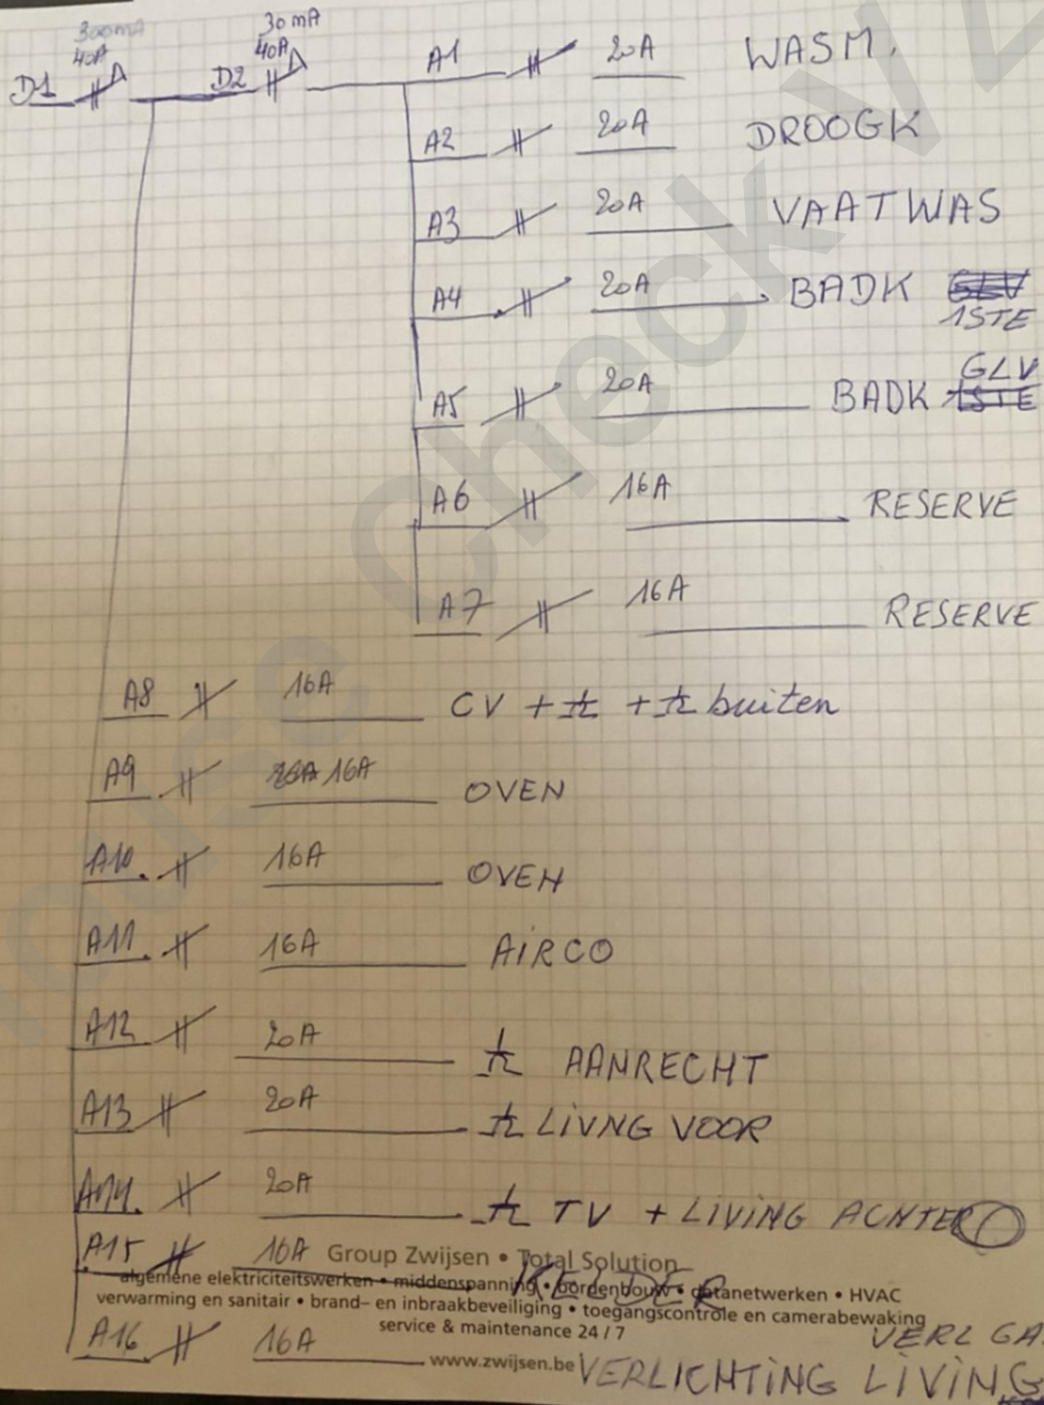 300mA 30mA
40A 40A
D1 D2 A1 20A WASM.
A2 20A DROOGK
A3 20A VAATWAS
A4 20A BADK
1STE
GLV
A5 20A BADK
A6 16A RESERVE
A7 16A RESERVE
A8 16A CV + + buiten
A9 16A OVEN
A10. 16A OVEN
A11. 16A AIRCO
A12 20A AANRECHT
A13 20A LIVNG VOOR
A14. 20A TV + LIVING ACHTER
A15 16A KELDER
Group Zwijsen • Total Solution
algemene elektriciteitswerken • middenspanning • bordenbouw • datanetwerken • HVAC
verwarming en sanitair • brand- en inbraakbeveiliging • toegangscontrole en camerabewaking
service & maintenance 24 / 7
VERL GA
A16 16A VERLICHTING LIVING
www.zwijsen.be